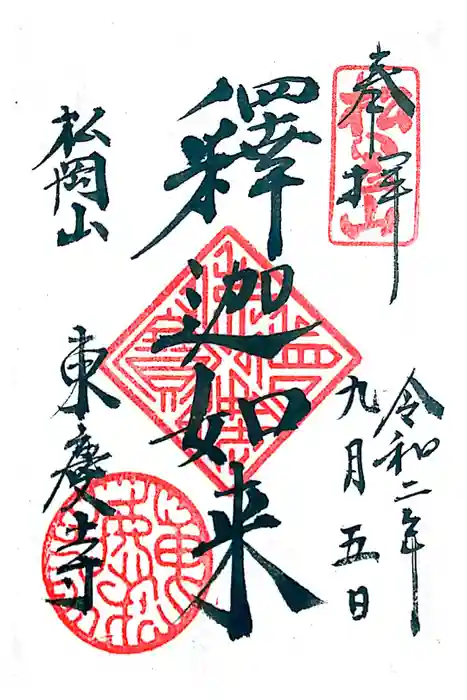 奉拝
令和二年
九月五日
釋迦如来
松岡山
東慶寺
松岡山